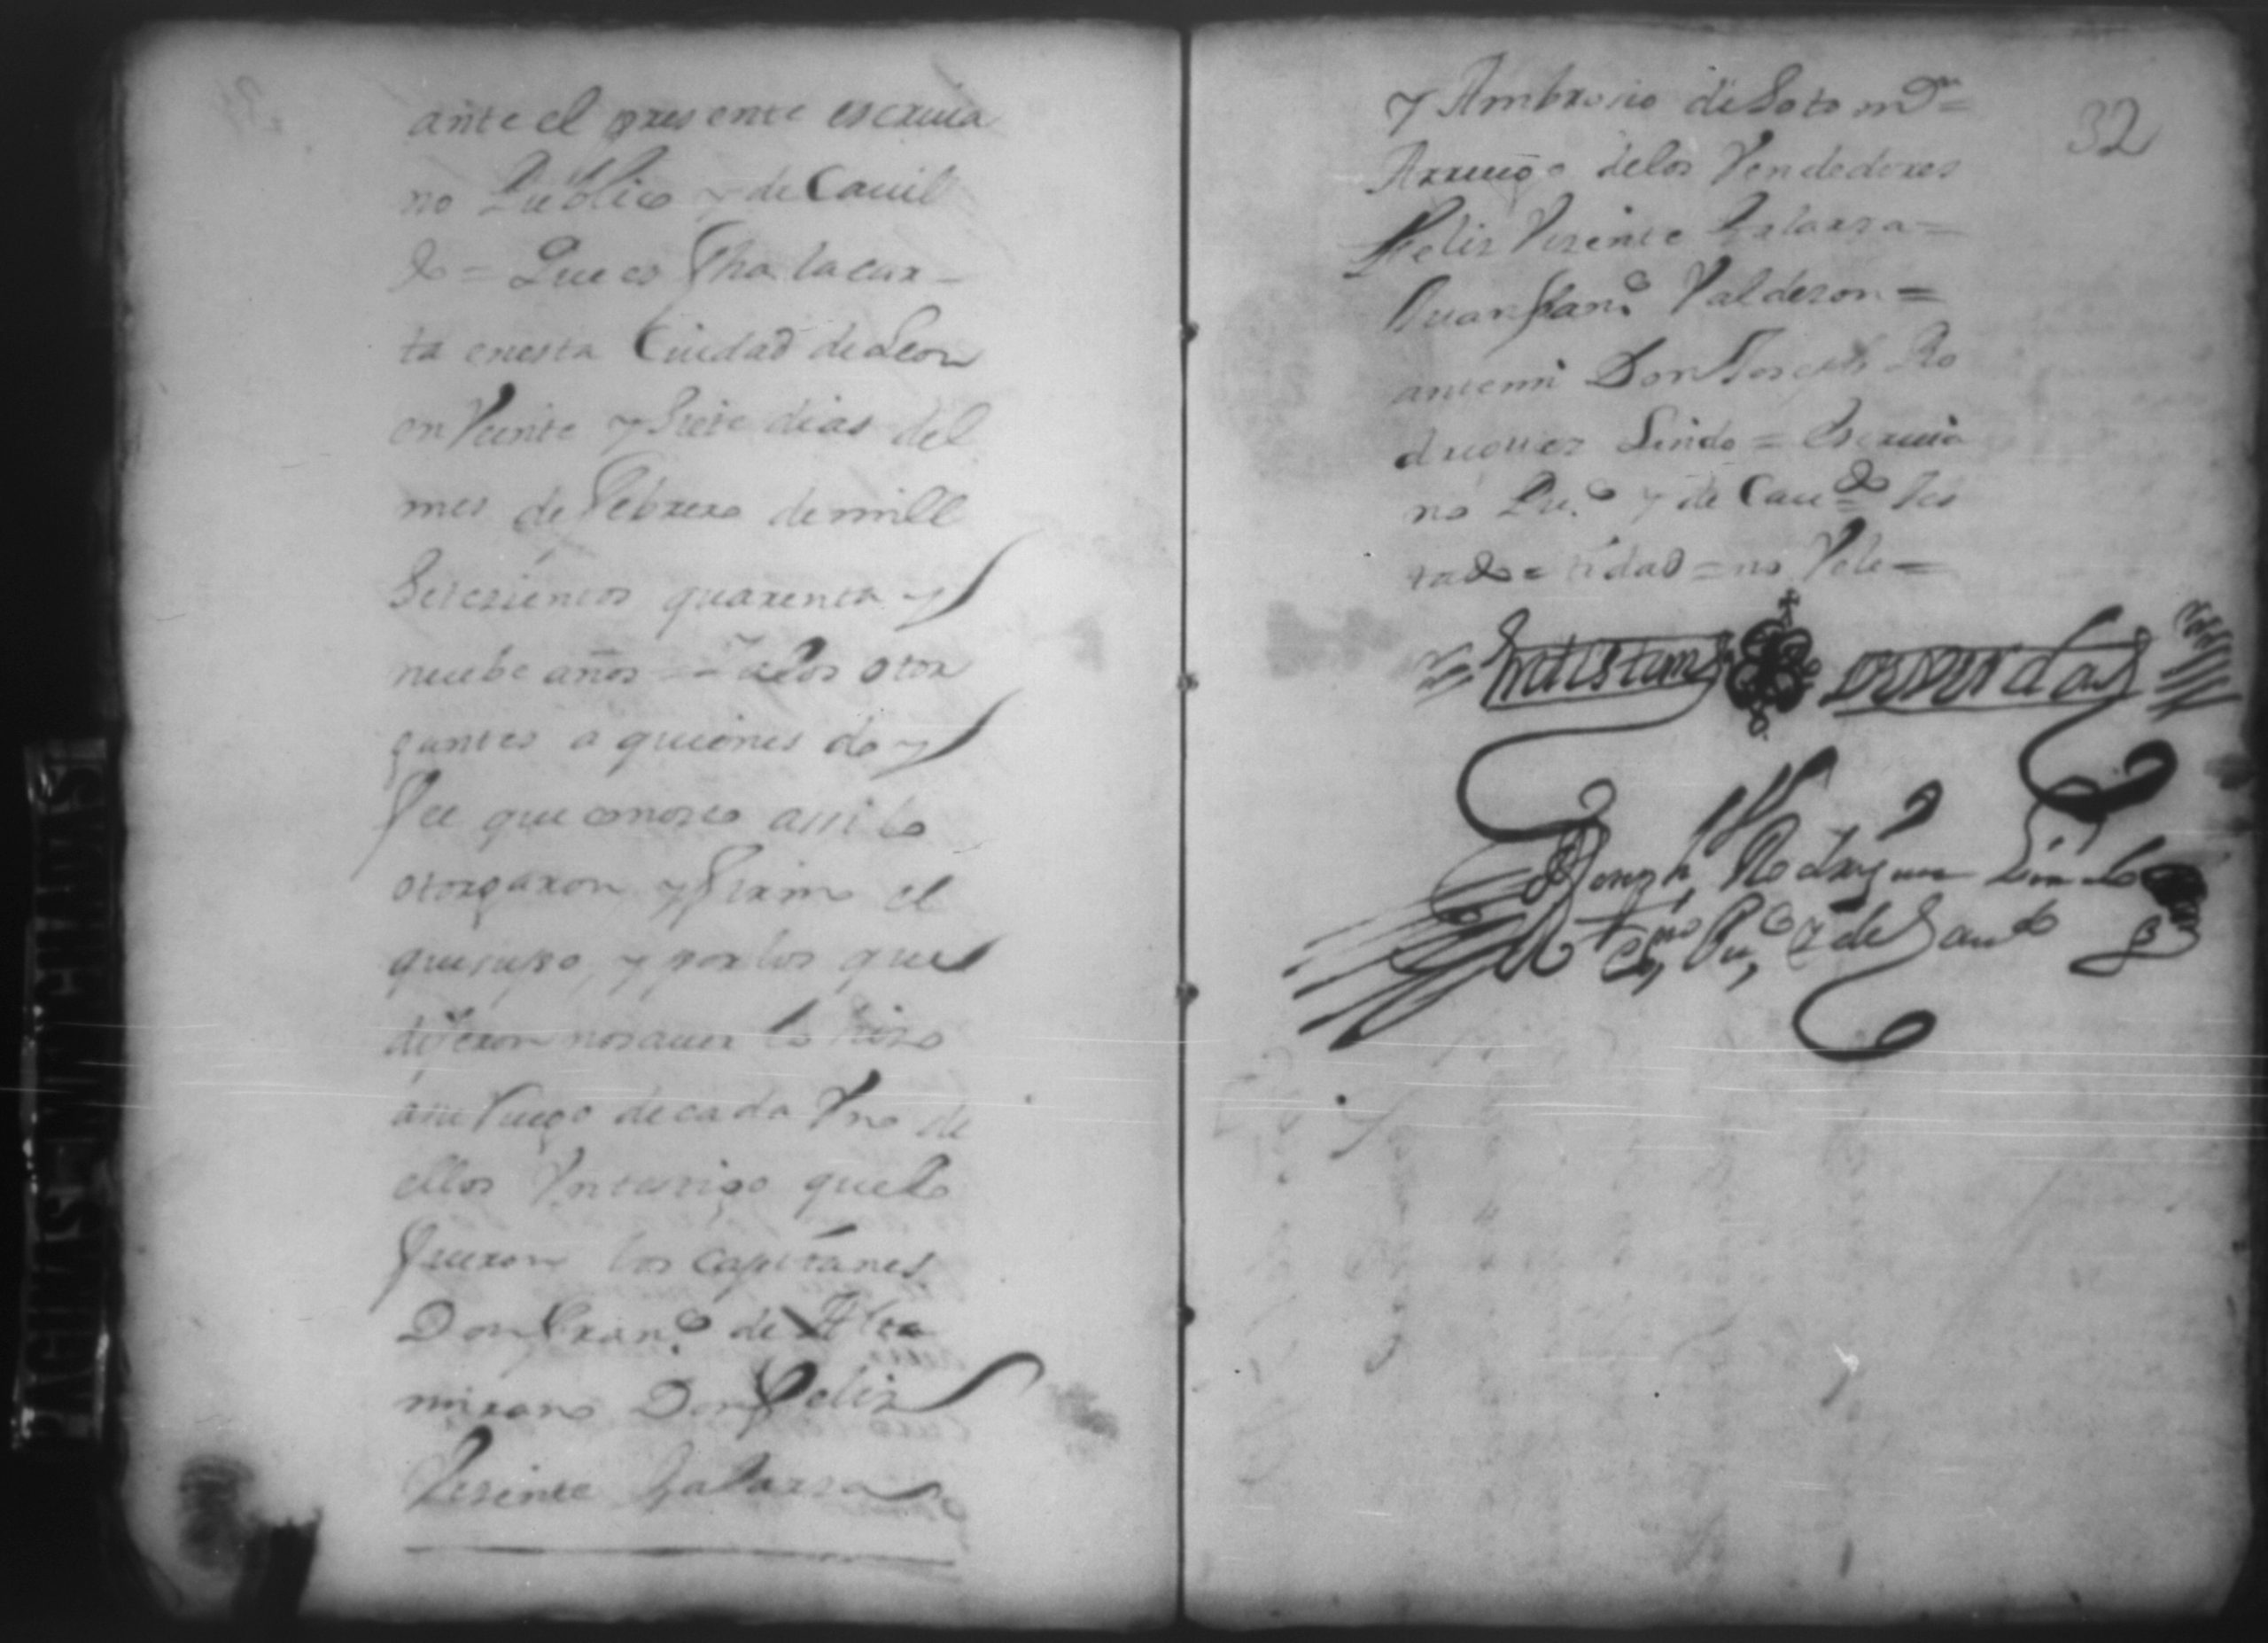 ante el presente escriua
no Publico y de Cauil
do = Que es fha la car_
ta en esta Ciudad de Leon
en Veinte y Siete dias del
mes de Febrero de mill
Setesientos quarenta y
nuebe años = Y a los otor
gantes a quienes doy
fee que conosco assi lo
otorgaron y firmo el
que supo, y por los que
dijeron no sauer lo hizo
a su Ruego de cada Vno de
ellos Vn testigo que lo
fueron los capitanes
Don Fran.co de Alta
mirano Don Felix
Visente Galarza
32
y Ambrosio de Soto
Arruego de los Vendedores
Felix Visente Galarza =
Juan Fran.co Valderon =
ante mi Don Joseph Ro
driguez Lindo = Escriua
no Pu.co y de Cau.do Tes
tado = tidad = no Vale =
Joseph Rodriguez Lindo
Esno Puco y de Caudo
PAGINAS MUTILADAS